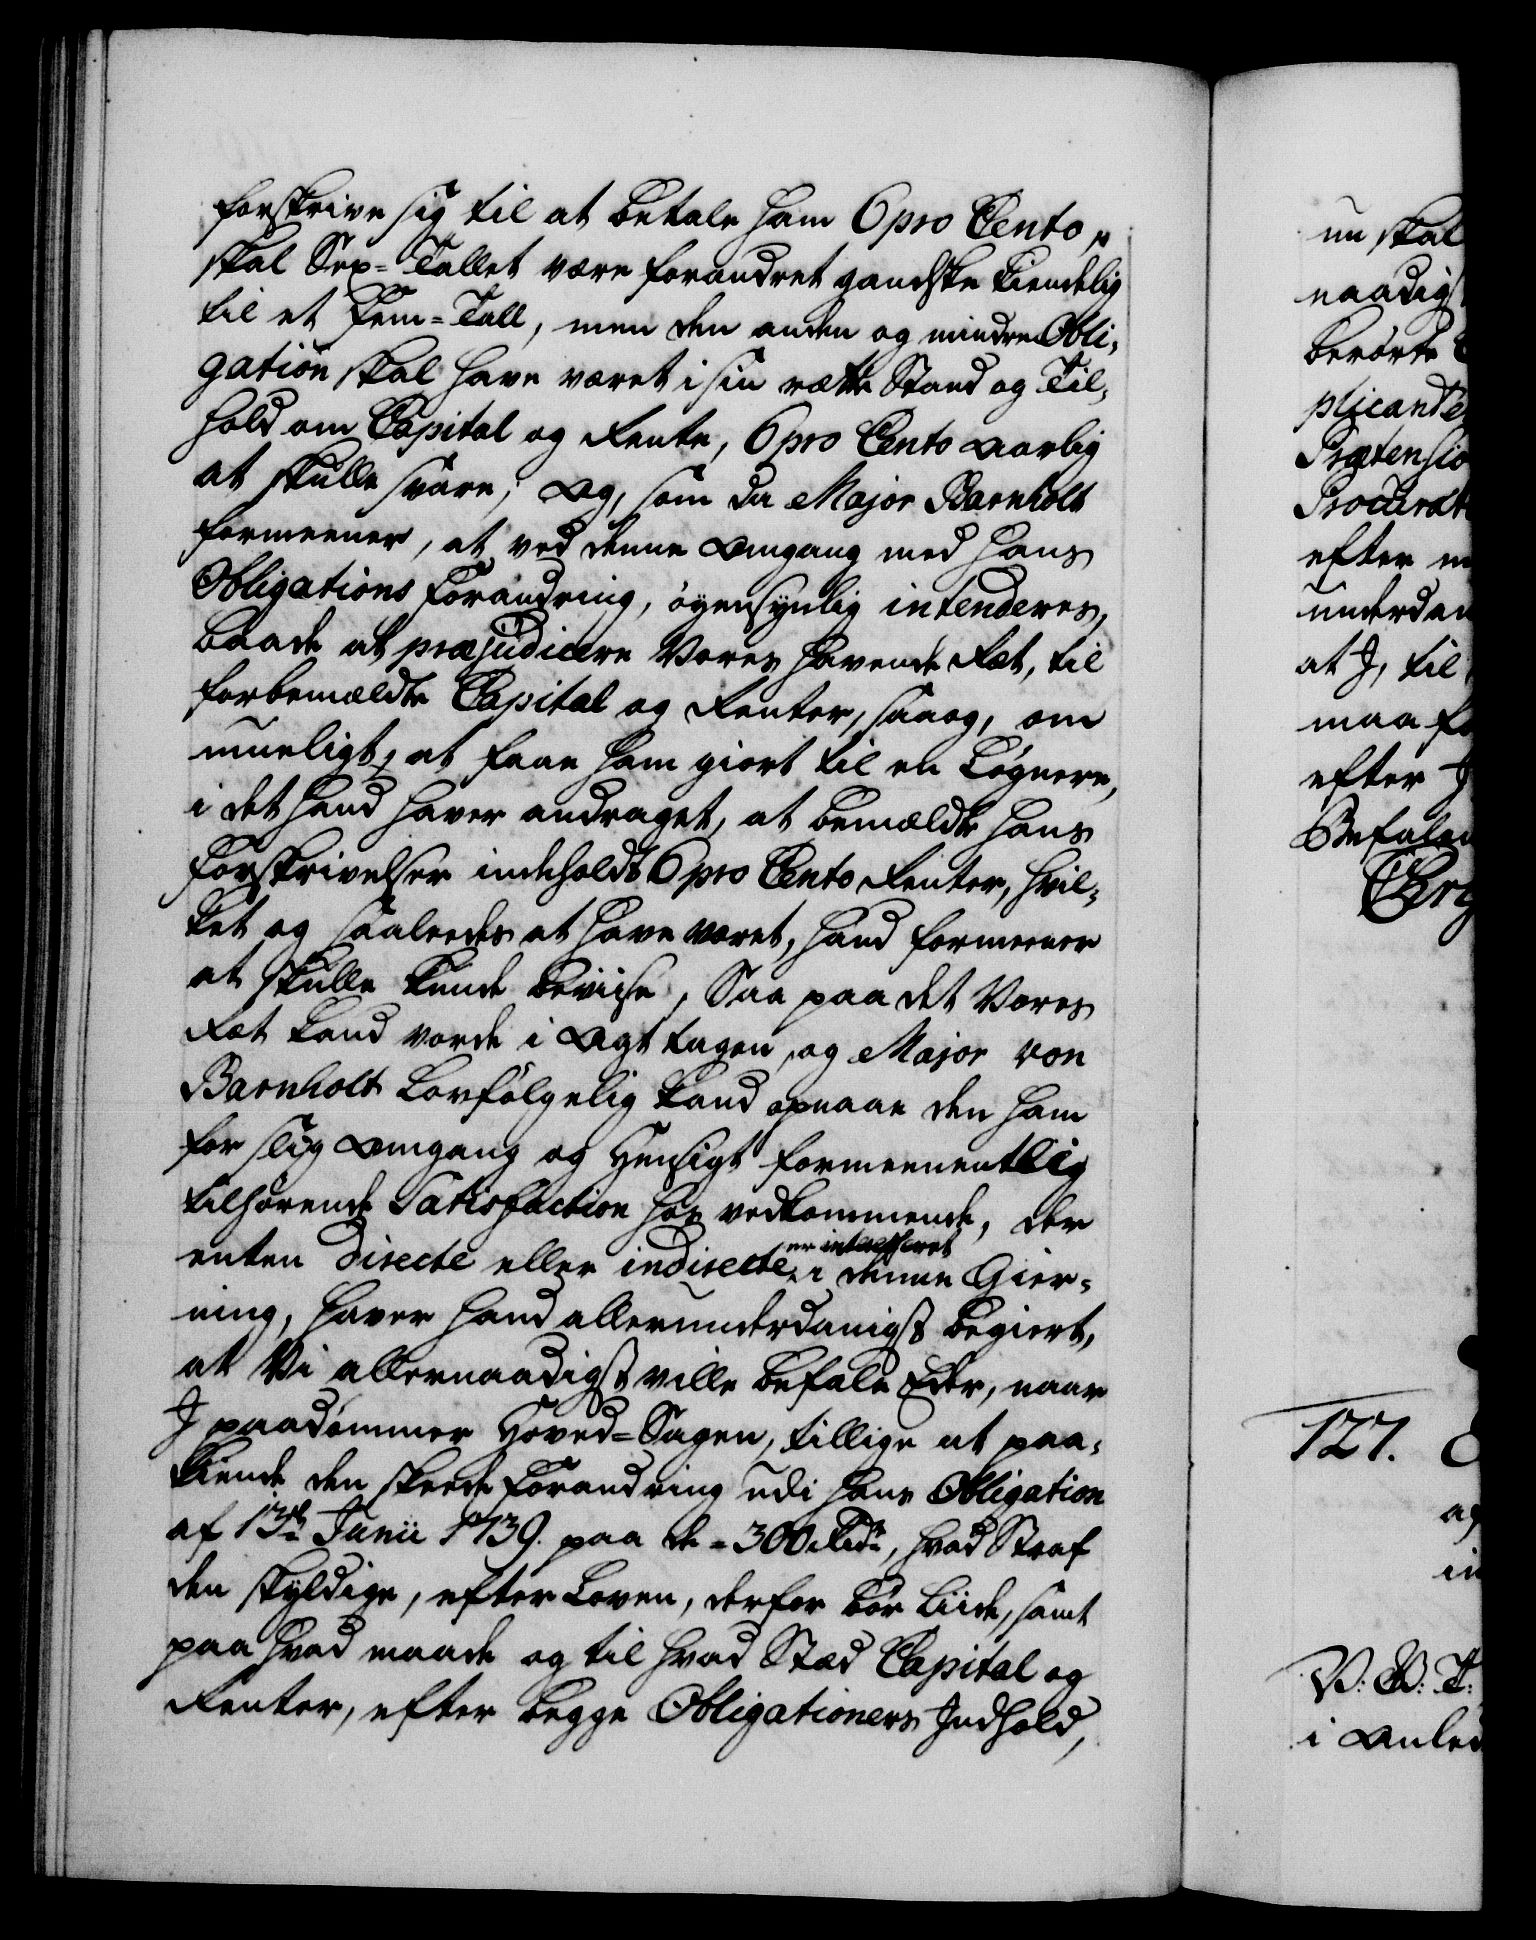 forskrive sig til at betale ham 6 pro Cento,
skal Sex-Tallet være forandret gandske kiendelig
til et Fem-Tall, men den anden og mindre Obli-
gation skal have været i sin rætte Stand og Til-
hold om Capital og Rente, 6 pro Cento aarlig
at skulle svare; Og, som da Major Barnholt
formeener, at ved denne Omgang med hans
Obligations Forandring, øyensynlig intenderes,
baade at præjudicere Vores havende Ræt, til
forbemældte Capital og Renter, saaog, om
mueligt, at faae ham giort til en Løgnere,
i det hand haver andraget, at bemældte hans
Forskrivelser indeholdt 6 pro Cento Renter, hvil-
ket og saaleedes at have været, hand formeener
at skulle kunde beviise, Saa paa det Vores
Ræt kand vorde i Agt tagen, og Major von
Barnholt Lovfølgelig kand opnaae den ham
for slig Omgang og Hensigt formeenentlig
tilhørende Satisfaction hos vedkommende, der
enten directe eller indirecte er interesseret i denne Gier-
ning, haver hand allerunderdanigst begiert,
at Vi allernaadigst ville befale Eder, naar
I paadømmer Hoved-Sagen, tillige at paa-
kiende den skeede Forandring udi hans Obligation
af 13de Junii 1739. paa de 300 Rdr, hvad Straf
den skyldige, efter Loven, derfor bør liide, samt
paa hvad maade og til hvad Stæd Capital og
Renter, efter begge Obligationers Indhold,
nu skal
naadigs
berørte
plicante
Prætensio
Procurat
efter
underdan
at I, til
maa
efter
Befalen
127.
V. G. T.
i Anled